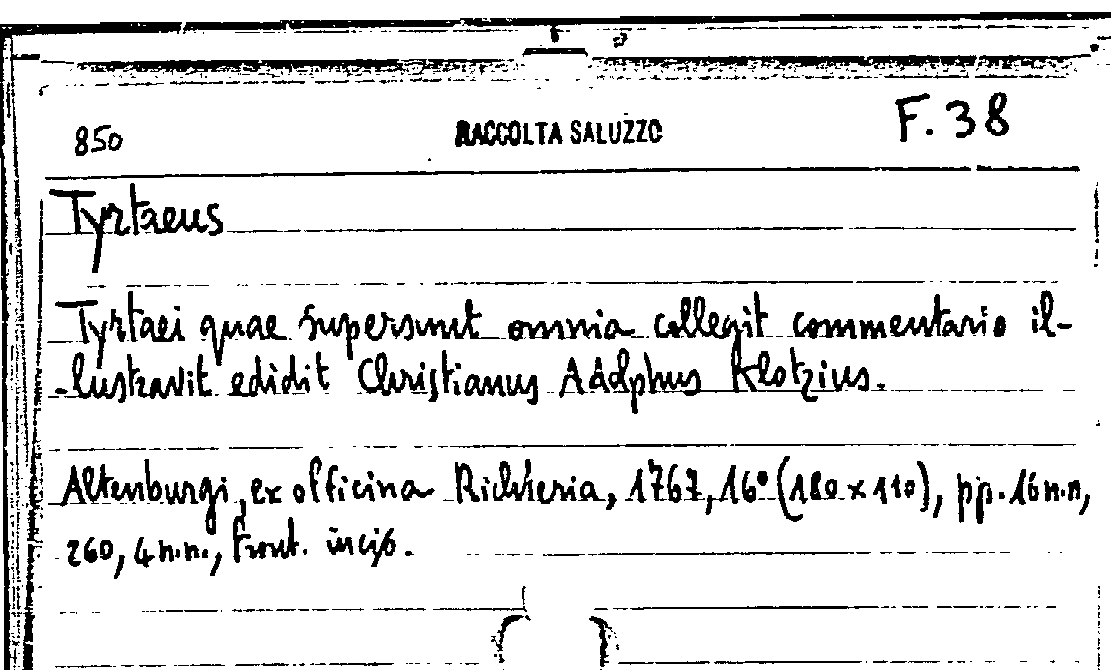 850 RACCOLTA SALUZZO F. 38
Tyrtaeus
Tyrtaei quae supersunt omnia collegit commentario il-
-lustravit edidit Christianus Adolphus Klotzius.
Altenburgi, ex officina Richteria, 1767, 16° (180 x 110), pp. 16 n.n,
260, 4 n.n., front. incis.